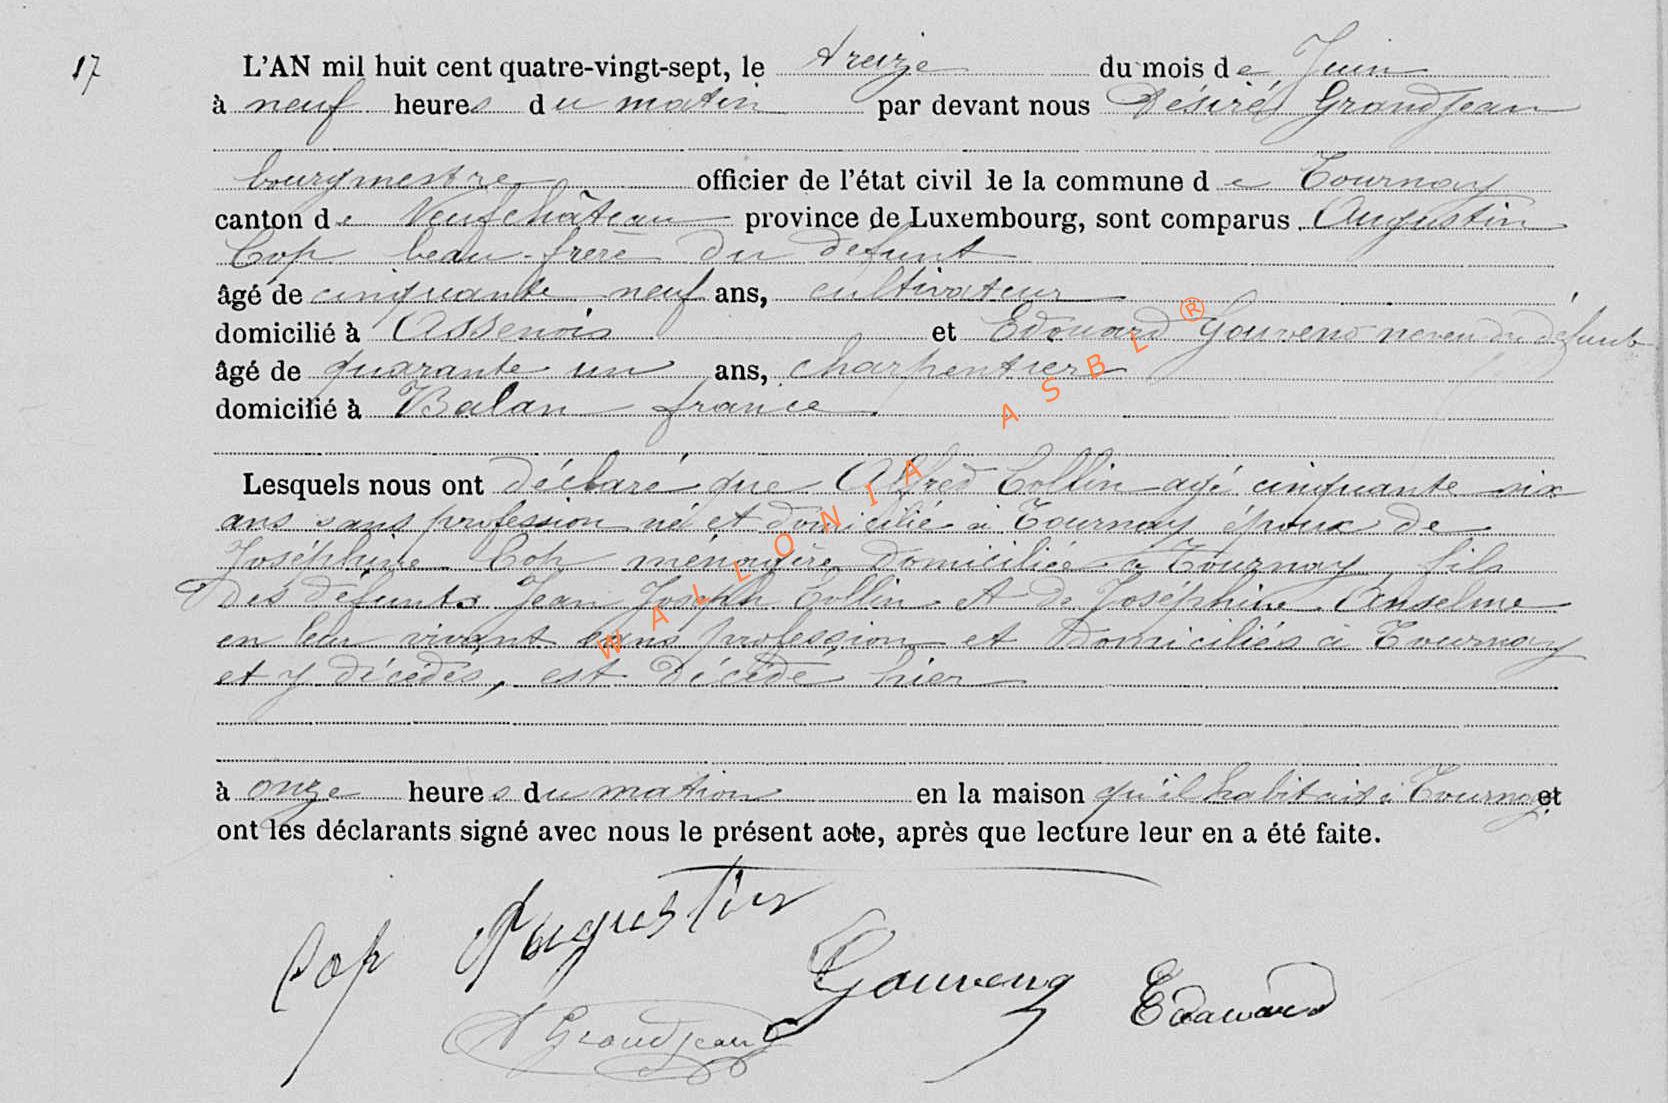 17
L'AN mil huit cent quatre-vingt-sept, le treize du mois de Juin
à neuf heures du matin par devant nous Désiré Grandjean
bourgmestre officier de l'état civil de la commune de Tournay
canton de Neufchâteau province de Luxembourg, sont comparus Augustin
Cop beau-frère du défunt
âgé de cinquante neuf ans, cultivateur
domicilié à Assenois et Edouard Gouveno neveu du défunt
âgé de quarante un ans, charpentier
domicilié à Balan france
Lesquels nous ont déclaré que Alfred Collin agé cinquante six
ans sans profession né et domicilié à Tournay époux de
Joséphine Cop ménagère domiciliée à Tournay, fils
des défunts Jean Joseph Collin et de Joséphine Anselme
en leur vivant sans profession et domiciliés à Tournay
et y décédés, est décédé hier
à onze heures du mation en la maison qu'il habitait à Tournay et
ont les déclarants signé avec nous le présent acte, après que lecture leur en a été faite.
Cop Augustin
Edouard
D Grandjean
WALLONIA ASBL ®